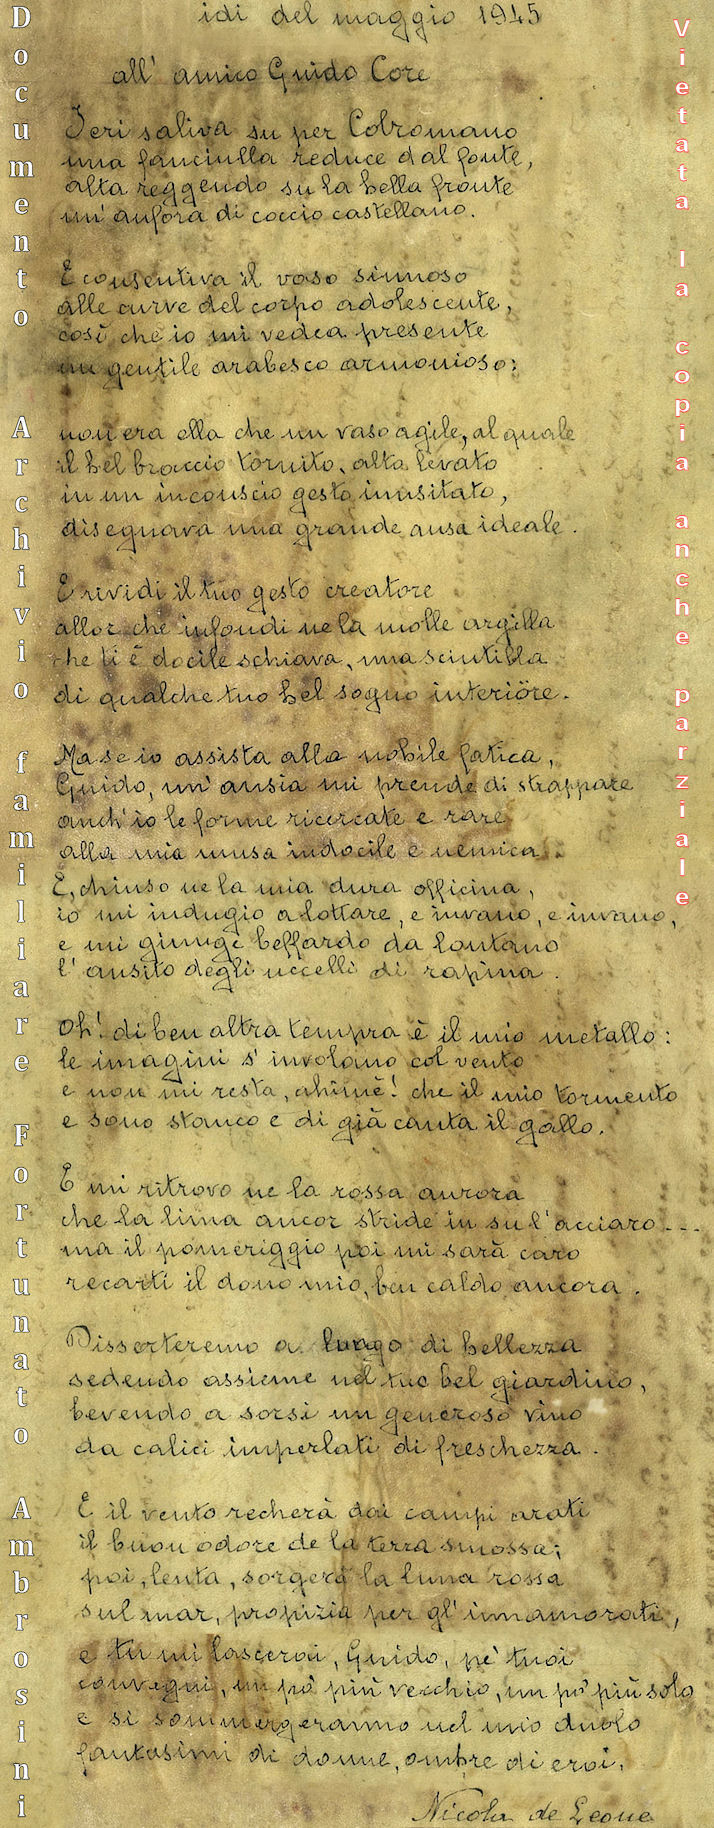 idi del maggio 1945
all' amico Guido Core
Ieri saliva su per Colromano
una fanciulla reduce dal fonte,
alta reggendo su la bella fronte
un' anfora di coccio castellano.
E consentiva il vaso sinuoso
alle curve del corpo adolescente,
così che io mi vedea presente
un gentile arabesco armonioso:
non era ella che un vaso agile, al quale
il bel braccio tornito, alto levato
in un inconscio gesto inusitato,
disegnava una grande ansa ideale.
E rividi il tuo gesto creatore
allor che infondi ne la molle argilla
che ti è docile schiava, una scintilla
di qualche tuo bel sogno interiore.
Ma se io assista alla nobile fatica,
Guido, un' ansia mi prende di strappare
anch' io le forme ricercate e rare
alla mia musa indocile e nemica.
E, chiuso ne la mia dura officina,
io mi indugio a lottare, e invano, e invano,
e mi giunge beffardo da lontano
l' ausito degli uccelli di rapina.
Oh! di ben altra tempra è il mio metallo:
le imagini s' involano col vento
e non mi resta, ahimè! che il mio tormento
e sono stanco e di già canta il gallo.
E mi ritrovo ne la rossa aurora
che la lima ancor stride in su l' acciaro...
ma il pomeriggio poi mi sarà caro
recarti il dono mio, ben caldo ancora.
Disserteremo a lungo di bellezza
sedendo assieme nel tuo bel giardino,
bevendo a sorsi un generoso vino
da calici imperlati di freschezza.
E il vento recherà dai campi arati
il buon odore de la terra smossa;
poi, lenta, sorgerà la luna rossa
sul mar, propizia per gl' innamorati,
e tu mi lascerai, Guido, pe' tuoi
convegni, un po' più vecchio, un po' più solo
e si sommergeranno nel mio duolo
fantasimi di donne, ombre di eroi.
Nicola de Leone
Documento Archivio familiare Fortunato Ambrosini
Vietata la copia anche parziale